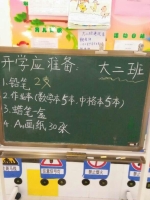 开学应准备 大二班
1.铅笔 2支
2.作业本(数学本5本,中格本5本)
3.蜡笔一盒
4.A4画纸30张